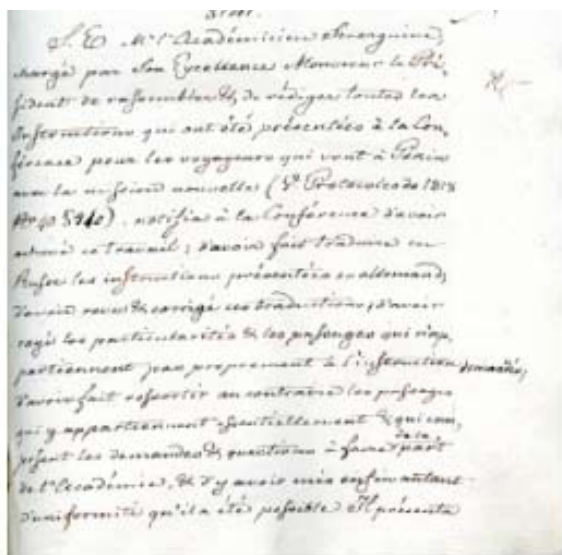 S. E. Mr. l'Académicien Severguine,
chargé par Son Excellence Monsieur le Pré,
sident de rassembler & de rédiger toutes les
Instructions qui ont été présentées à la Con,
férence pour les voyageurs qui vont à Pékin
avec la mission nouvelle (V. Protocolle de 1818
No 40 § 940). notifia à la Conférence d'avoir
achevé ce travail; d'avoir fait traduire en
Russe les instructions présentées en allemand,
d'avoir revu & corrigé ces traductions, d'avoir
rayé les particularités & les passages qui n'ap,
partiennent pas proprement à l'instruction demandée,
d'avoir fait ressortir au contraire les passages
qui y appartiennent essentiellement & qui com,
posent les demandes & questions à faire de la part
de l'Académie, & d'y avoir mis enfin autant
d'uniformité qu'il a été possible. Il présenta